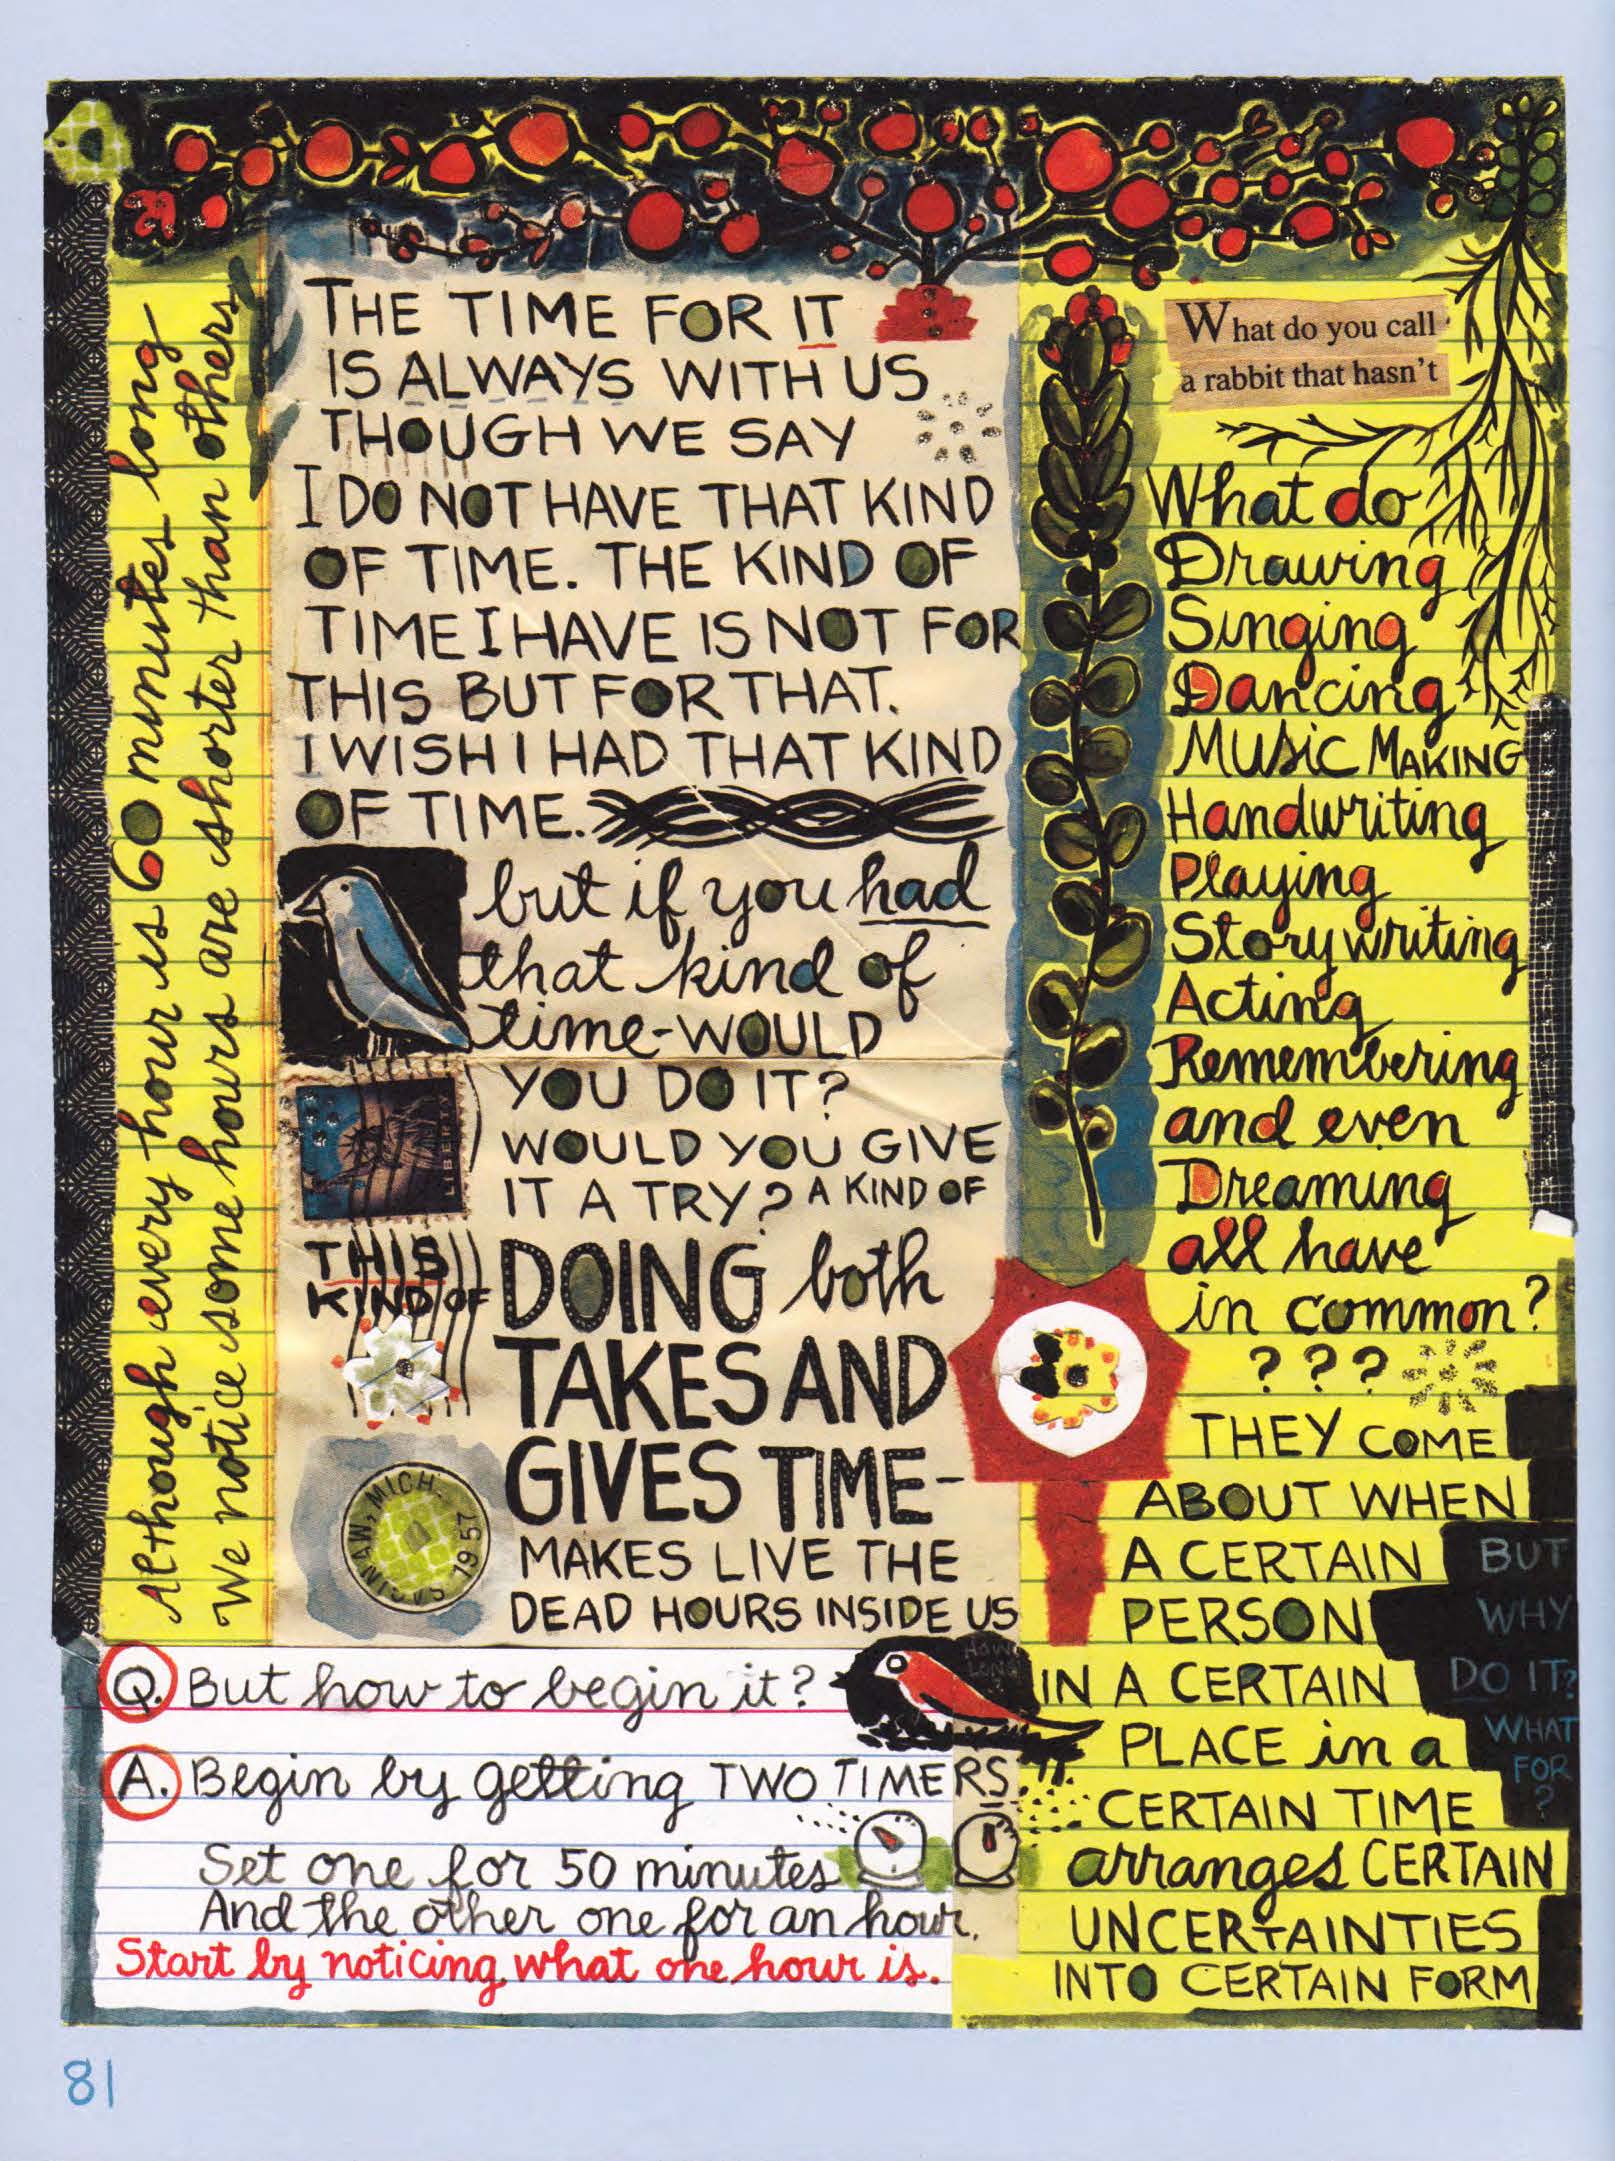 Although every hour is 60 minutes long
We notice some hours are shorter than others
THE TIME FOR IT
IS ALWAYS WITH US
THOUGH WE SAY
I DO NOT HAVE THAT KIND
OF TIME. THE KIND OF
TIME I HAVE IS NOT FOR
THIS BUT FOR THAT.
I WISH I HAD THAT KIND
OF TIME.
but if you had
that kind of
time-WOULD
YOU DO IT?
WOULD YOU GIVE
IT A TRY? A KIND OF
LIBERTY
THIS
KIND OF
DOING both
TAKES AND
GIVES TIME-
MAKES LIVE THE
DEAD HOURS INSIDE US
SAGINAW, MICH. 1957
Q. But how to begin it?
A. Begin by getting TWO TIMERS
Set one for 50 minutes
And the other one for an hour.
Start by noticing what one hour is.
HOW
LONG
?
What do you call
a rabbit that hasn't
What do
Drawing
Singing
Dancing
MUSIC MAKING
Handwriting
Playing
Story writing
Acting
Remembering
and even
Dreaming
all have
in common?
? ? ?
THEY COME
ABOUT WHEN
A CERTAIN
PERSON
IN A CERTAIN
PLACE in a
CERTAIN TIME
arranges CERTAIN
UNCERTAINTIES
INTO CERTAIN FORM
BUT
WHY
DO IT?
WHAT
FOR
?
81